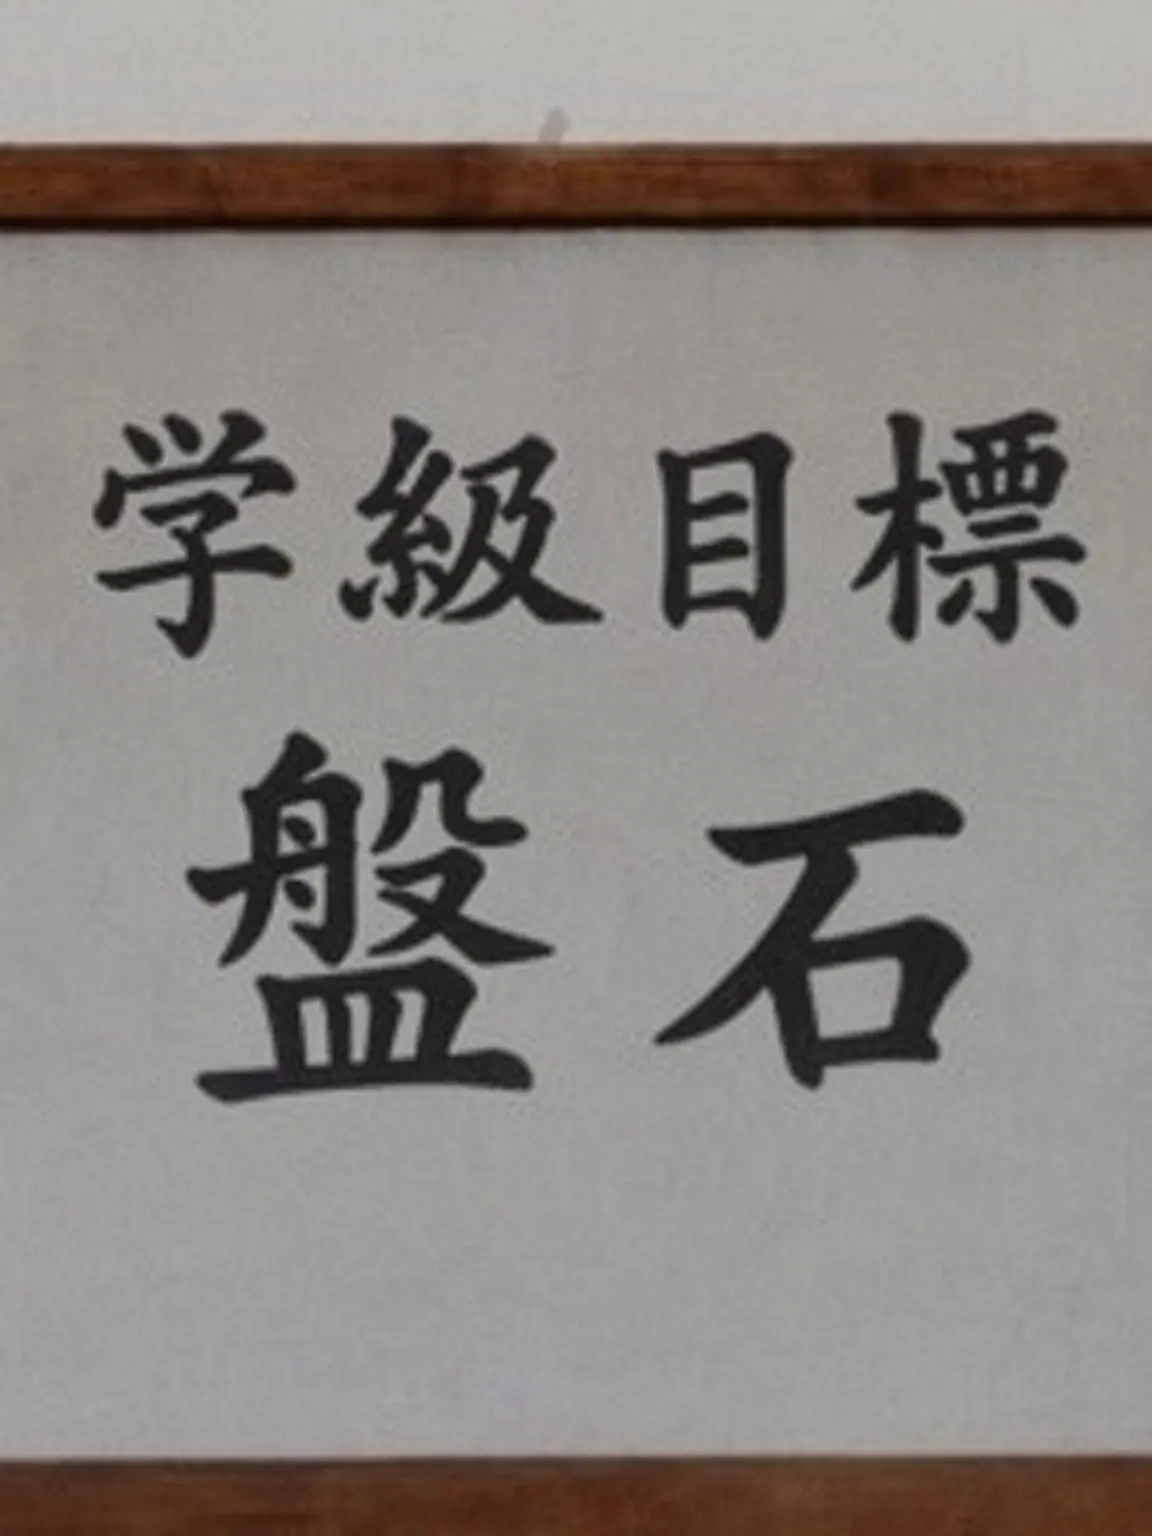 学級目標
盤石